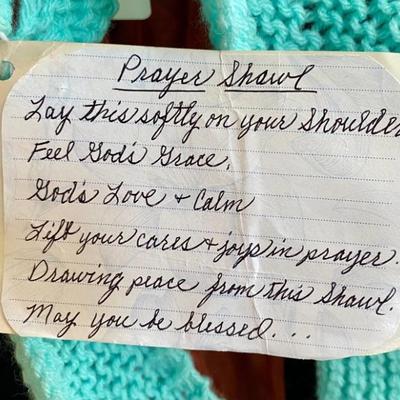 Prayer Shawl
Lay this softly on your shoulder
Feel God's Grace,
God's Love + Calm
Lift your cares + joys in prayer.
Drawing peace from this Shawl.
May you be blessed. . .